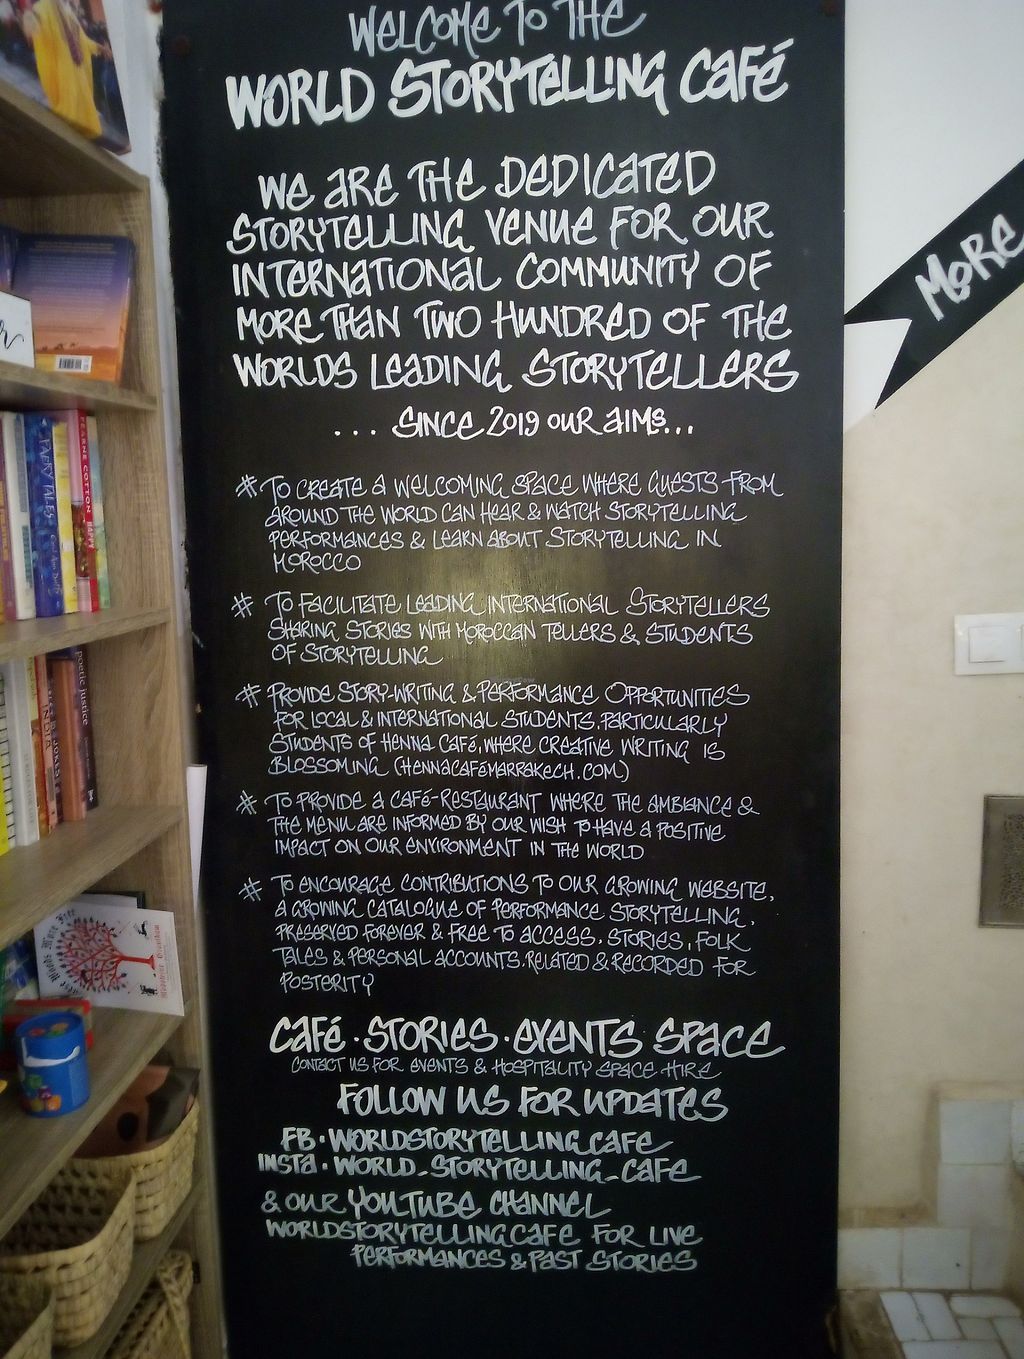 WELCOME TO THE
WORLD STORYTELLING CAFÉ
WE ARE THE DEDICATED
STORYTELLING VENUE FOR OUR
INTERNATIONAL COMMUNITY OF
MORE THAN TWO HUNDRED OF THE
WORLDS LEADING STORYTELLERS
... SINCE 2019 OUR AIMS...
# TO CREATE A WELCOMING SPACE WHERE GUESTS FROM
AROUND THE WORLD CAN HEAR & WATCH STORYTELLING
PERFORMANCES & LEARN ABOUT STORYTELLING IN
MOROCCO
# TO FACILITATE LEADING INTERNATIONAL STORYTELLERS
SHARING STORIES WITH MOROCCAN TELLERS & STUDENTS
OF STORYTELLING
# PROVIDE STORY-WRITING & PERFORMANCE OPPORTUNITIES
FOR LOCAL & INTERNATIONAL STUDENTS, PARTICULARLY
STUDENTS OF HENNA CAFÉ, WHERE CREATIVE WRITING IS
BLOSSOMING (HENNACAFÉMARRAKECH.COM)
# TO PROVIDE A CAFÉ-RESTAURANT WHERE THE AMBIANCE &
THE MENU ARE INFORMED BY OUR WISH TO HAVE A POSITIVE
IMPACT ON OUR ENVIRONMENT IN THE WORLD
# TO ENCOURAGE CONTRIBUTIONS TO OUR GROWING WEBSITE,
A GROWING CATALOGUE OF PERFORMANCE STORYTELLING,
PRESERVED FOREVER & FREE TO ACCESS. STORIES, FOLK
TALES & PERSONAL ACCOUNTS. RELATED & RECORDED FOR
POSTERITY
CAFÉ · STORIES · EVENTS SPACE
CONTACT US FOR EVENTS & HOSPITALITY SPACE HIRE
FOLLOW US FOR UPDATES
FB · WORLDSTORYTELLINGCAFE
INSTA · WORLD_STORYTELLING_CAFE
& OUR YOUTUBE CHANNEL
WORLDSTORYTELLINGCAFE FOR LIVE
PERFORMANCES & PAST STORIES
MORE
FAERY TALES
FEARNE COTTON HAPPY
poetic justice
INDIA